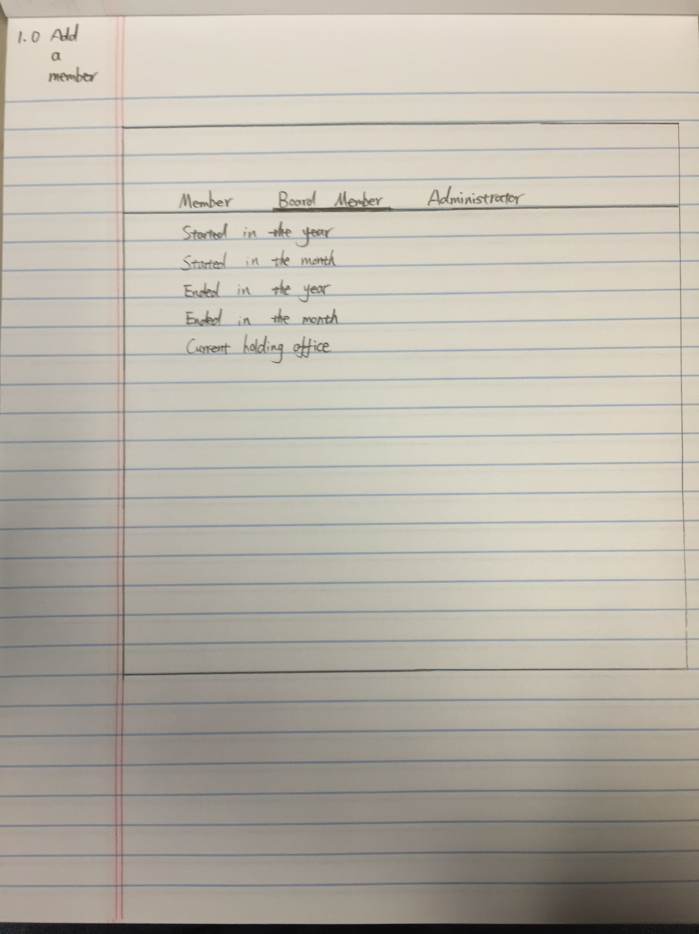 1.0 Add
a
member
Member Board Member Administrator
Started in the year
Started in the month
Ended in the year
Ended in the month
Current holding office